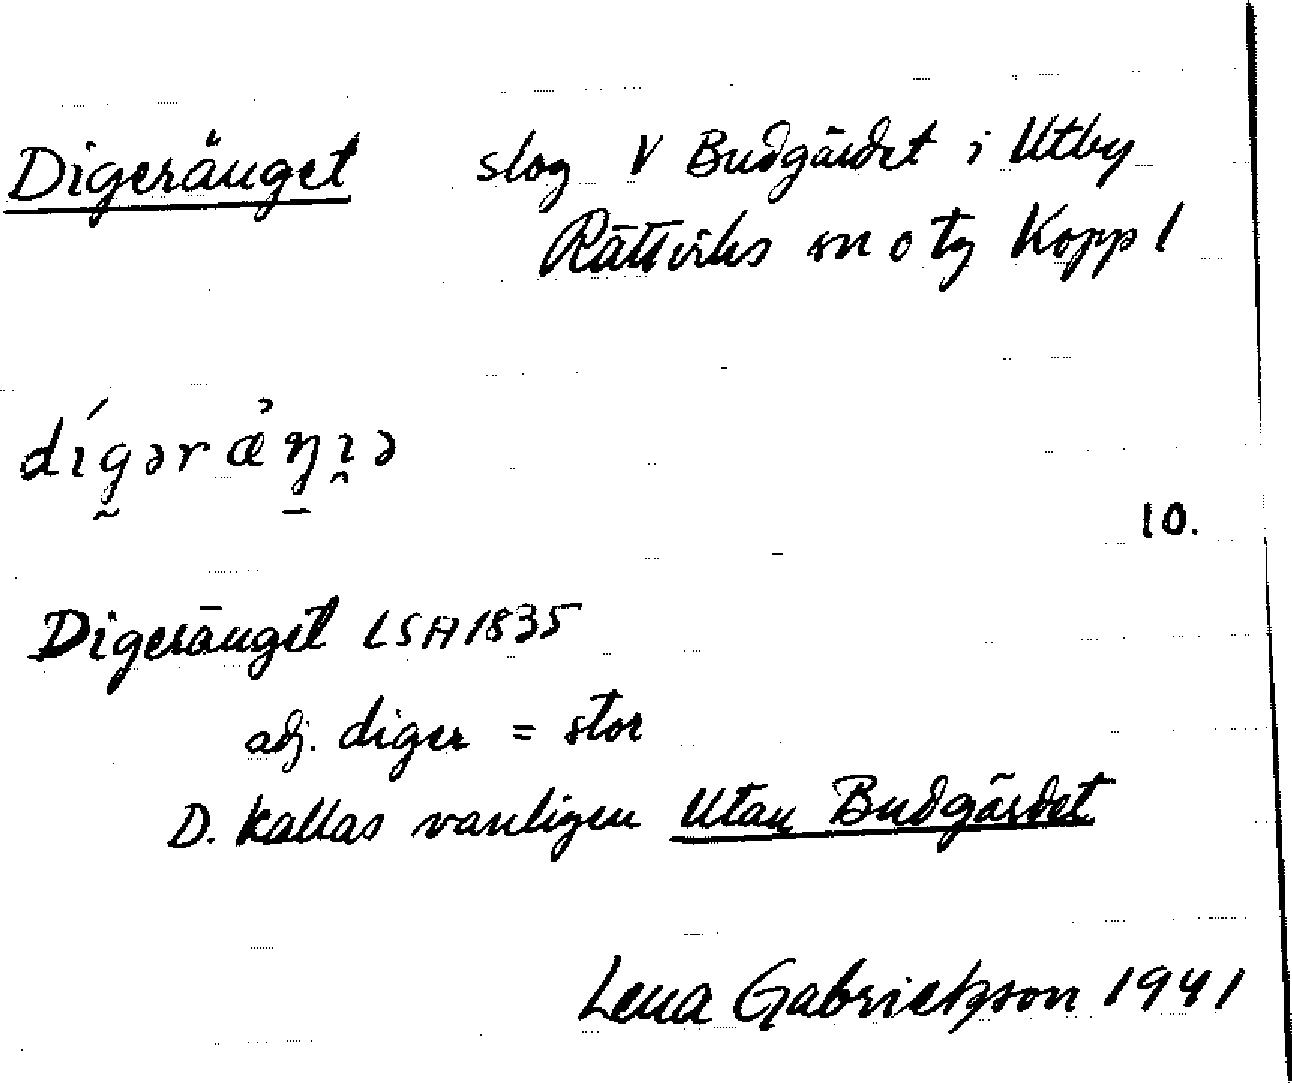 Digeränget slog V Budgärdet i Utby
Rättviks sn o tg Kopp l
dígəræ̀ŋı̯ə
10.
Digeränget LSA 1835
adj. diger = stor
D. kallas vanligen Utan Budgärdet
Lena Gabrielsson 1941